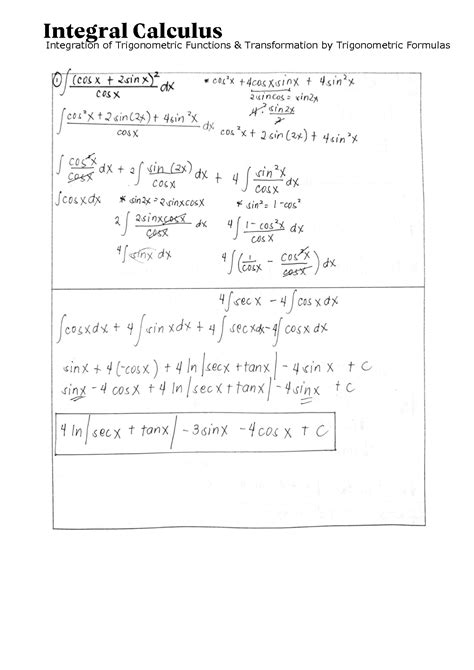 Integral Calculus
Integration of Trigonometric Functions & Transformation by Trigonometric Formulas
① ∫ (cos x + 2 sin x)² / cos x dx * cos²x + 4cosx sinx + 4 sin²x
2sincos = sin2x
4·² sin2x / 2
∫ cos²x + 2 sin(2x) + 4 sin²x / cos x dx cos²x + 2 sin(2x) + 4 sin²x
∫ cos²x / cosx dx + 2∫ sin(2x) / cosx dx + 4∫ sin²x / cosx dx
∫cosxdx * sin2x = 2sinxcosx * sin² = 1-cos²
2∫ 2sinxcosx / cosx dx 4∫ 1-cos²x / cosx dx
4∫sinx dx 4∫(1/cosx - cos²x/cosx) dx
4∫sec x - 4∫cosxdx
∫cosxdx + 4∫sinxdx + 4∫secxdx-4∫cosxdx
sinx + 4(-cosx) + 4 ln|secx+tanx| - 4sinx + C
sinx - 4 cosx + 4 ln|secx+tanx| - 4sinx + C
4 ln|secx + tanx| - 3sinx - 4cosx + C